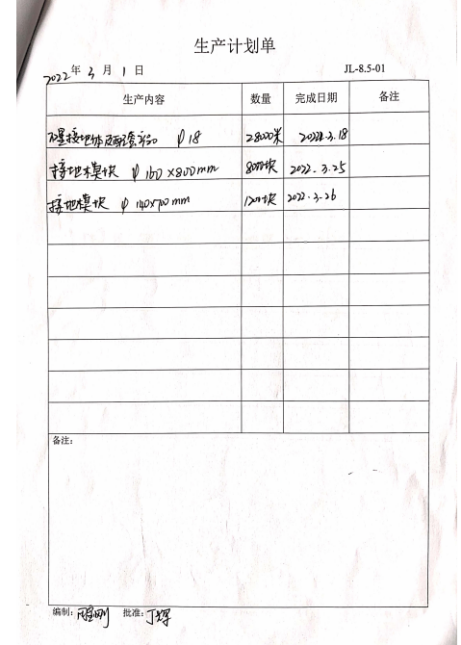 生产计划单
2022年3月1日 JL-8.5-01
生产内容 数量 完成日期 备注
接地体及配套 φ18 28000米 2022.3.18
接地模块 φ160×800mm 8000块 2022.3.25
接地模块 φ140×70mm 1200块 2022.3.26
备注：
编制： 批准：丁辉